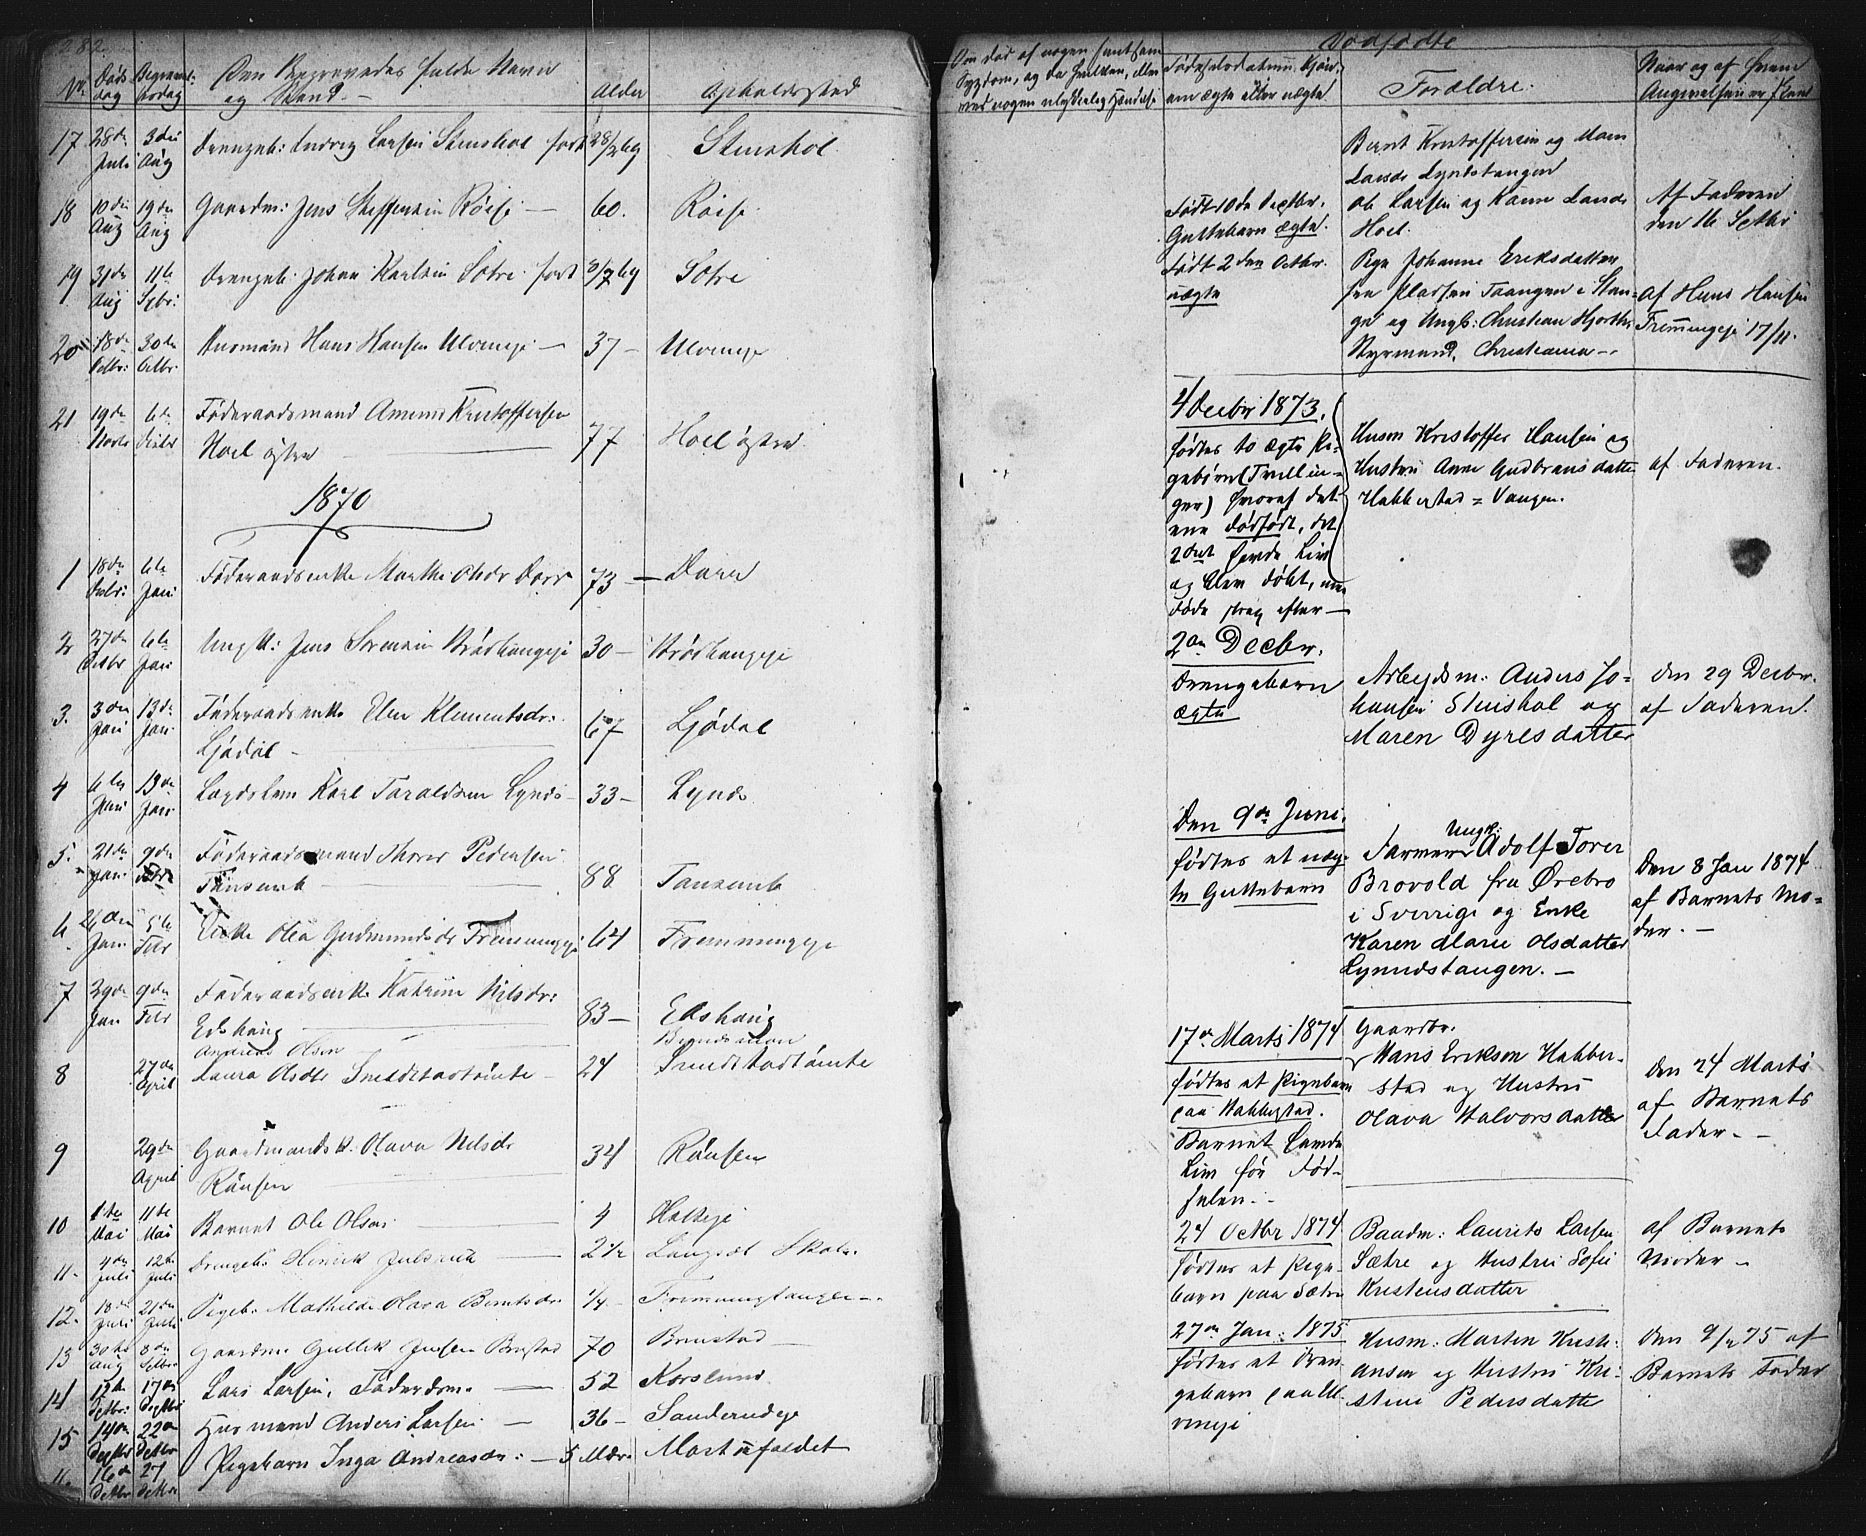 282
No. Døds dag Begravel: sesdag Den Begravedes fulde Navn og Stand.— Alder Opholdssted
17 28de Juli 3die Aug Drengeb: Ludvig Larsen Stenshol født 28/2 69 Stenshol
18 10de Aug 19de Aug Gaardm: Jens Steffensen Röise — 60. Röise
19 31de Aug 11te Spbr: Drengeb: Johan Karlsen Sötre født 69 Sötre
20 18de Octbr: 30de Octbr Husmand Hans Hansen Ulvineje — 37 — Ulvineje
21 19de Novbr 6te Decbr Föderaadsmand Amund Kristoffersen
Hoel östre — 77 Hoel östre
1870
1 18de Decbr: 6te Jan: Föderaadsenke Marthe Olsdr Dorr 73 — Dorr
2 27de Decbr 6te Jan Ungk: Jens Sörensen Brödhaugeje 30 — Brödhaugeje
3. 3die Jan 13de Jan: Föderaadsenke Elen Klementsdr:
Ljödal — 67 Ljödal
4 6te Jan: 13de Jan: Lægdslem Karl Taraldsen Lynds 33 — Lynds
5. 21de Jan: 9de Febr Föderaadsmand Thorer Pedersen
Tansemb — 88 Tansemb
6 26de Jan: 5te Febr Enke Olea Gudmundsdr Fremmingeje 64 Fremmingeje
7 29de Jan 9de Febr Föderaadsenke Kathrine Nilsdr:
Edshaug — 83 — Edshaug
Andreas Olsen
8 27de April Laura Olsdtr Smedstadtomte — 24 Smedstadtomte
9 29de April Gaardmandsk. Olava Nilsdr
Rånsen — 34 Rånsen
10 1ste Mai 11te Mai Barnet Ole Olsen — 4
11. 4de Juli 12te Juli Drengeb: Henrik — 2 1/2
12. 13de Juli 21de Juli Pigeb: Mathilde Olava Berntsdr 1/4 — Fremmingtangen —
13 30te Aug 8de Setbr: Gaardm: Gullik Jensen Brustad 70 Brustad —
14 12te Septbr: 17de Septbr Lars Larsen, Föderdsm. — 52 Korslund
15 14de Septbr 22de Septbr Husmand Anders Larsen — 36 — Sanderudeje
16. 16de Octbr 27 Octbr Pigebarn Inga Andreasdr: — 5 Mdr: Mortenfaldet
Om död af nogen smitsom
Sygdom, og da hvilken, eller
ved nogen ulykkelig Hændelse
Dödfödte
Födselsdatum, Kjön,
om ægte eller uægte
Forældre.
Naar og af hvem
Angivelsen er skeet
Bernt Kristoffersen og Maren
Larsdr Lyndstangen
Født 10de Decbr.
Guttebarn ægte.
Ole Larsen og Karen Larsdr
Hoel.
Af Faderen
den 16 Septbr
Født 2den Octbr.
uægte
Pige Johanne Eriksdatter
fra Pladsen Taangen i Stan-
ge og Ungk: Christian Hjorth,
Styrmand, Christiania —
Af Hans Hansen
Fremmingeje 17/11.
4 Decbr 1873.
fødtes to ægte Pi-
gebörn (Tvillin-
ger) hvoraf det
ene dödfödt, det
2det havde Liv
og blev döbt, men
döde strax efter —
Husm Kristoffer Hansen og
Hustru Anne Gudbransdatter
Habberstad = Vangen.
af Faderen.
2den Decbr.
Drengebarn
ægte
Arbejdsm: Anders Jo-
hansen Stenshol og
Maren Dyresdatter
den 29 Decbr.
af Faderen.
Den 9de Juni
fødtes et uæg-
te Guttebarn
Ungk:
Farmer Adolf Torer
Brovold fra Örebro
i Sverrige og Enke
Karen Marie Olsdatter
Lynndstangen. —
Den 8 Jan 1874
af Barnets Mo-
der. —
17de Marts 1874
fødtes et Pigebarn
paa Habberstad.
Barnet havde
Liv för Föd-
selen. —
Gaardbr.
Hans Erikson Habber-
stad og Hustru
Olava Halvorsdatter
den 24 Marts
af Barnets
Fader. —
24 Octbr 1874
fødtes et Pige-
barn paa Sætre
Baadm: Laurits Larsen
Sætre og Hustru Sofie
Kristensdatter
af Barnets
Moder —
27de Jan: 1875
fødtes et Dren-
gebarn paa Ul-
vineje
Husm: Marten Kristi-
ansen og Hustru Kri-
stine Pedersdatter
den 9/2 75 af
Barnets Fader